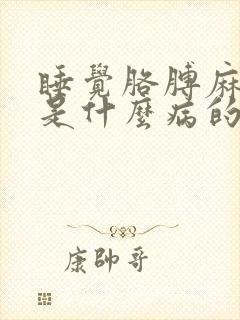 睡覺胳膊麻
是什麼病的
康帥哥